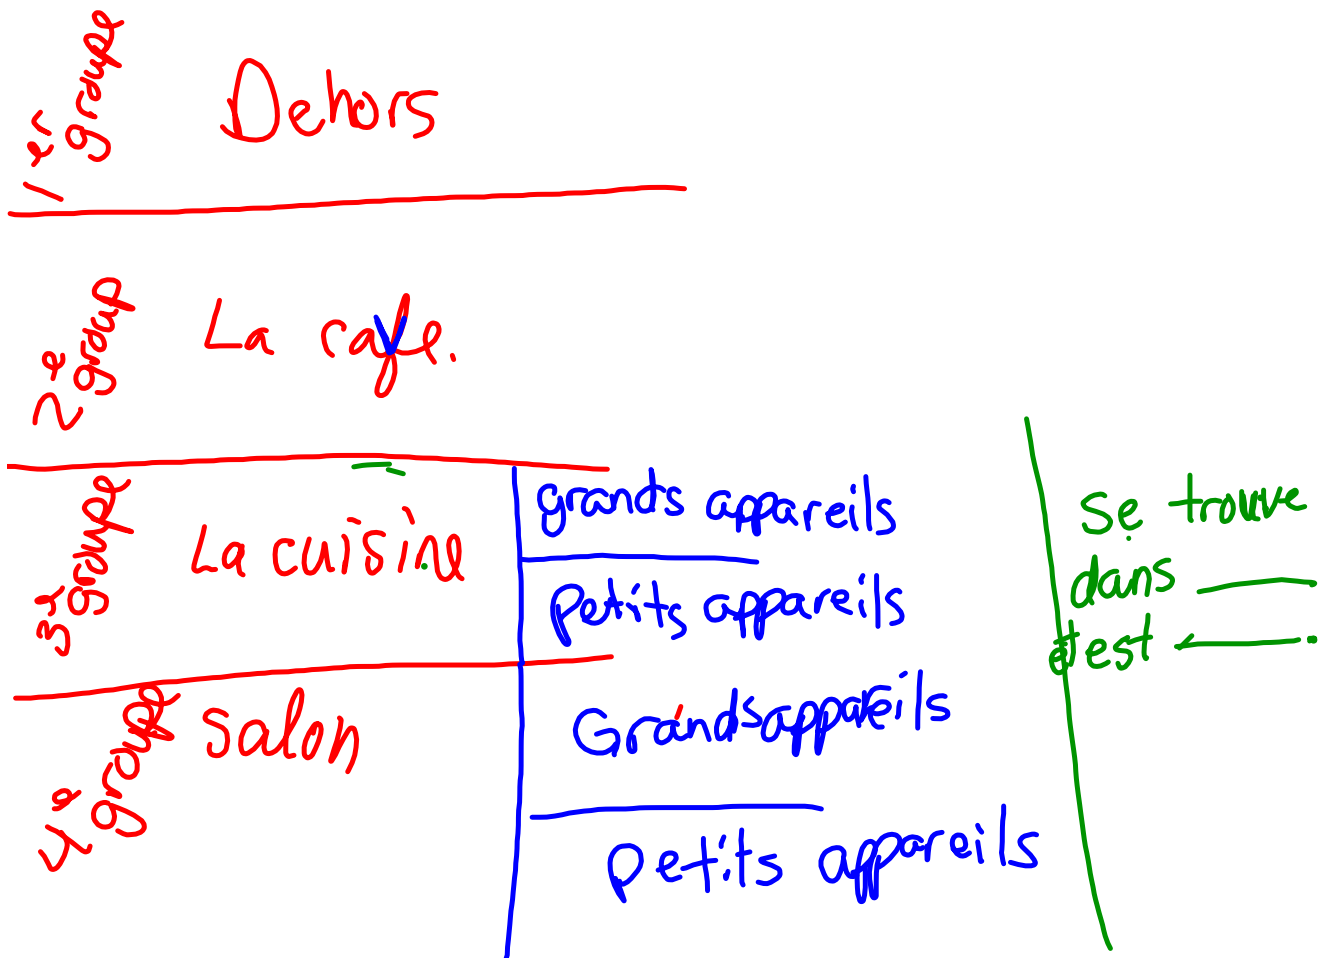 1er groupe
Dehors
2e group
La cave.
3e groupe
La cuisine
grands appareils
petits appareils
4e groupe
salon
Grands appareils
petits appareils
se trouve
dans
est